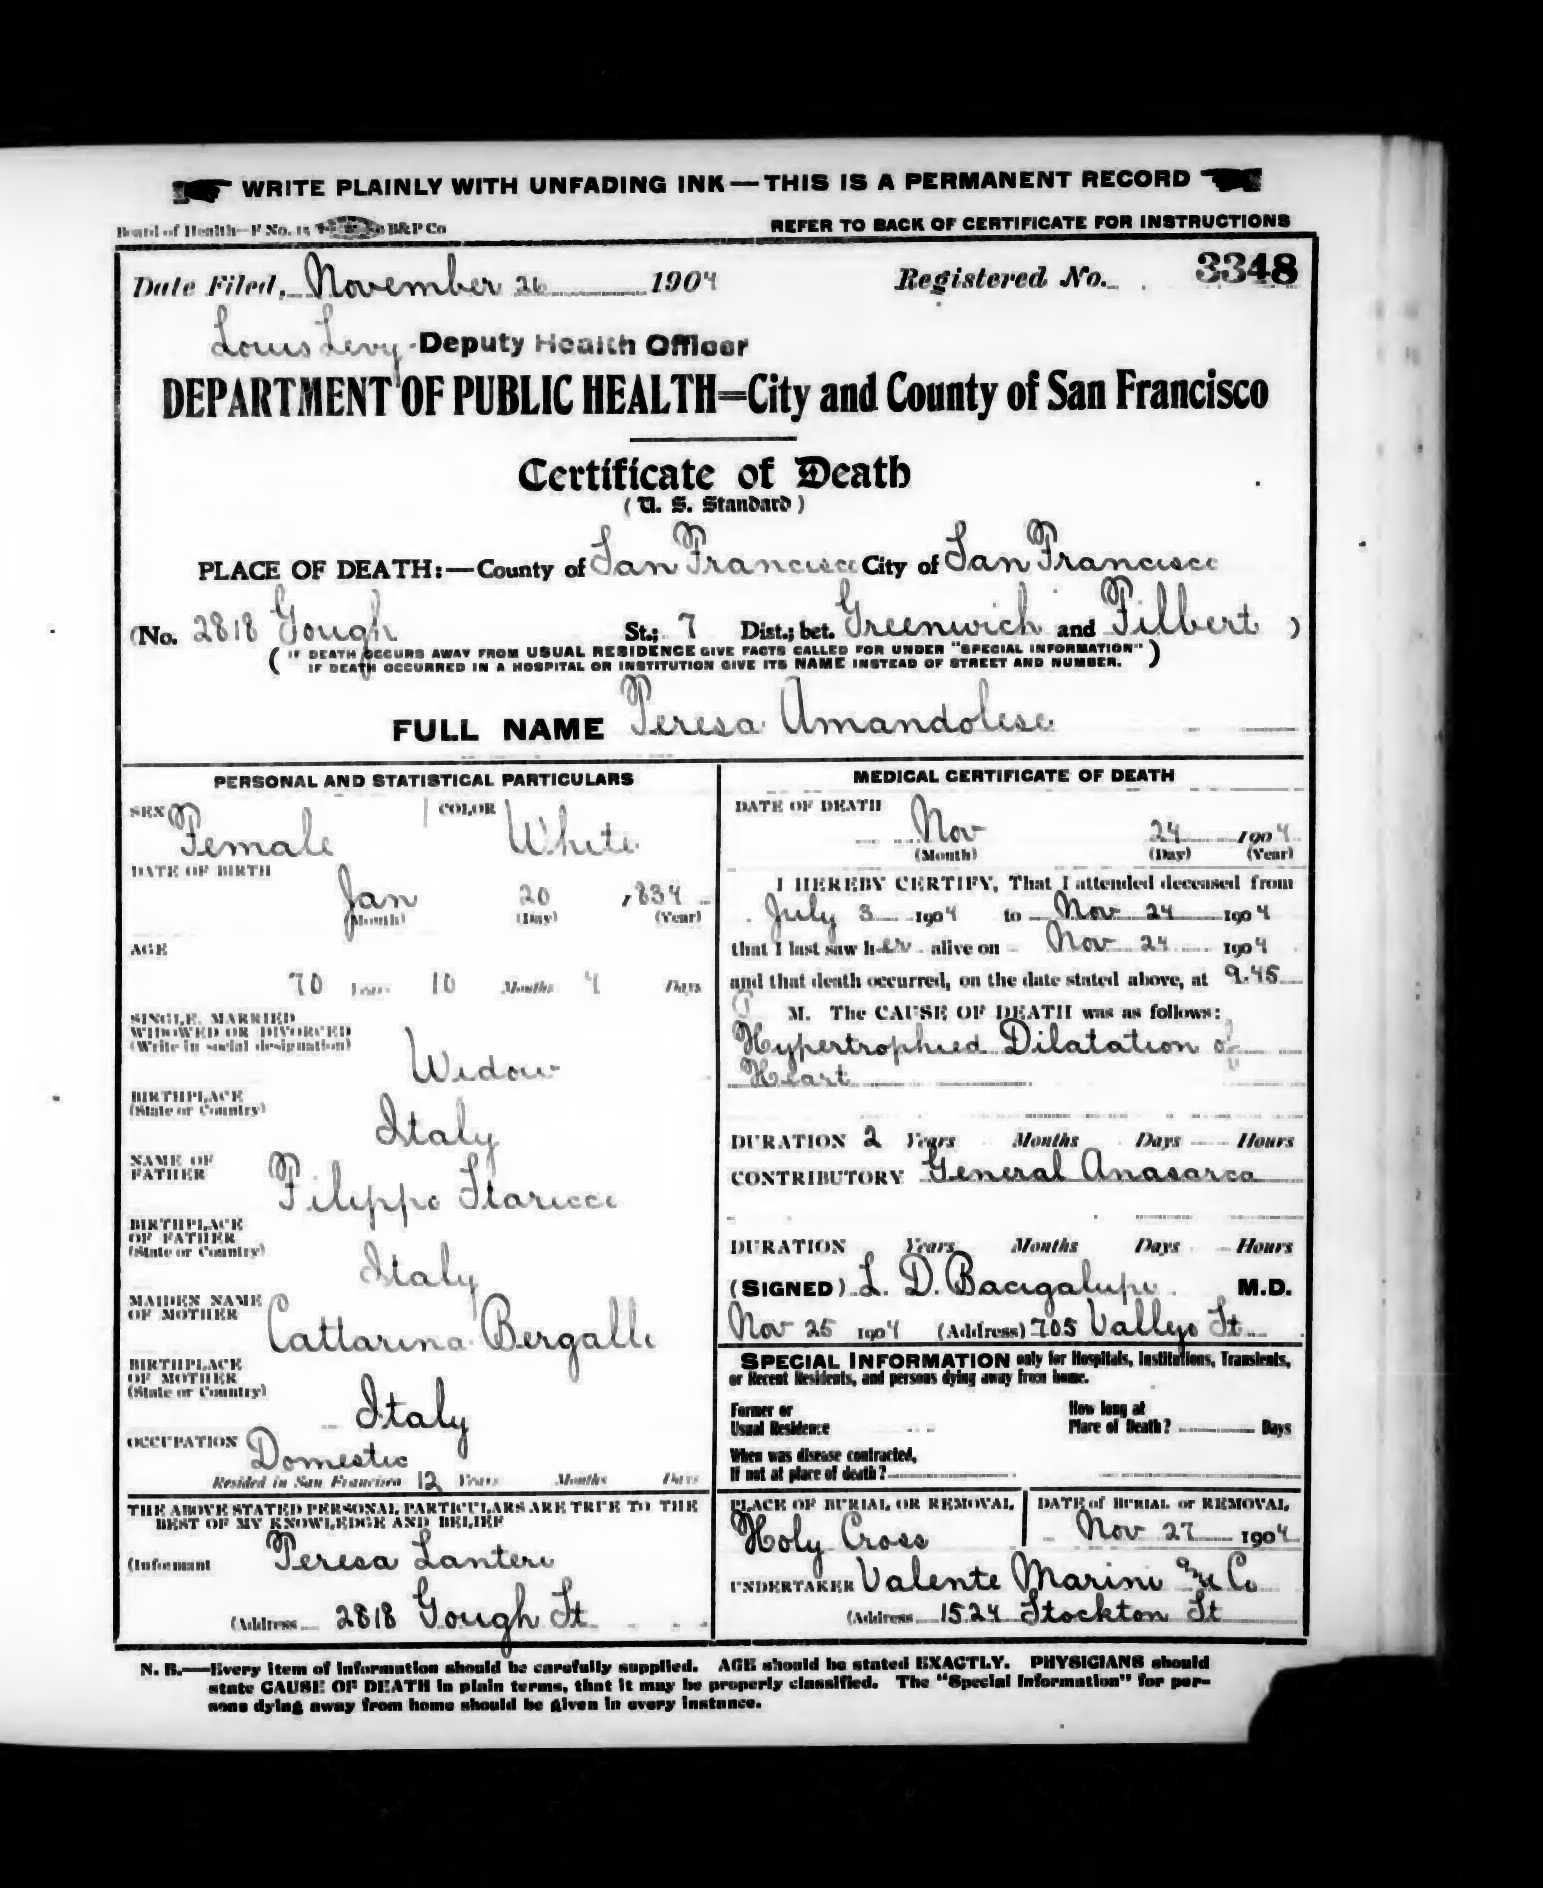 WRITE PLAINLY WITH UNFADING INK—THIS IS A PERMANENT RECORD
Board of Health—F No. 15 B&P Co
REFER TO BACK OF CERTIFICATE FOR INSTRUCTIONS
Date Filed, November 26 1904 Registered No. 3348
Louis Levy Deputy Health Officer
DEPARTMENT OF PUBLIC HEALTH=City and County of San Francisco
Certificate of Death
(U. S. Standard)
PLACE OF DEATH:—County of San Francisco City of San Francisco
(No. 2818 Gough St.; 7 Dist.; bet. Greenwich and Filbert )
(IF DEATH OCCURS AWAY FROM USUAL RESIDENCE GIVE FACTS CALLED FOR UNDER "SPECIAL INFORMATION"
IF DEATH OCCURRED IN A HOSPITAL OR INSTITUTION GIVE ITS NAME INSTEAD OF STREET AND NUMBER.)
FULL NAME Teresa Amandolese
PERSONAL AND STATISTICAL PARTICULARS
SEX Female COLOR White
DATE OF BIRTH
Jan 20 ,834
(Month) (Day) (Year)
AGE
70 Years 10 Months 4 Days
SINGLE, MARRIED
WIDOWED OR DIVORCED
(Write in social designation)
Widow
BIRTHPLACE
(State or Country)
Italy
NAME OF
FATHER
Filippo
BIRTHPLACE
OF FATHER
(State or Country)
Italy
MAIDEN NAME
OF MOTHER
Cattarina Bergalli
BIRTHPLACE
OF MOTHER
(State or Country)
Italy
OCCUPATION
Domestic
Resided in San Francisco 12 Years Months Days
THE ABOVE STATED PERSONAL PARTICULARS ARE TRUE TO THE
BEST OF MY KNOWLEDGE AND BELIEF
(Informant Teresa Lanteri
(Address 2818 Gough St
MEDICAL CERTIFICATE OF DEATH
DATE OF DEATH
Nov 24 1904
(Month) (Day) (Year)
I HEREBY CERTIFY, That I attended deceased from
July 3 1904 to Nov 24 1904
that I last saw her alive on Nov 24 1904
and that death occurred, on the date stated above, at 9.45
P M. The CAUSE OF DEATH was as follows:
Hypertrophied Dilatation of
Heart
DURATION 2 Years Months Days Hours
CONTRIBUTORY General Anasarca
DURATION Years Months Days Hours
(SIGNED) L. D. Bacigalupi M.D.
Nov 25 1904 (Address) 705 Vallejo St
SPECIAL INFORMATION only for Hospitals, Institutions, Transients,
or Recent Residents, and persons dying away from home.
Former or
Usual Residence
How long at
Place of Death? Days
When was disease contracted,
If not at place of death?
PLACE OF BURIAL OR REMOVAL
Holy Cross
DATE of BURIAL or REMOVAL
Nov 27 1904
UNDERTAKER Valente Marini and Co
(Address 1524 Stockton St
N. B.—Every item of information should be carefully supplied. AGE should be stated EXACTLY. PHYSICIANS should
state CAUSE OF DEATH in plain terms, that it may be properly classified. The "Special Information" for per-
sons dying away from home should be given in every instance.